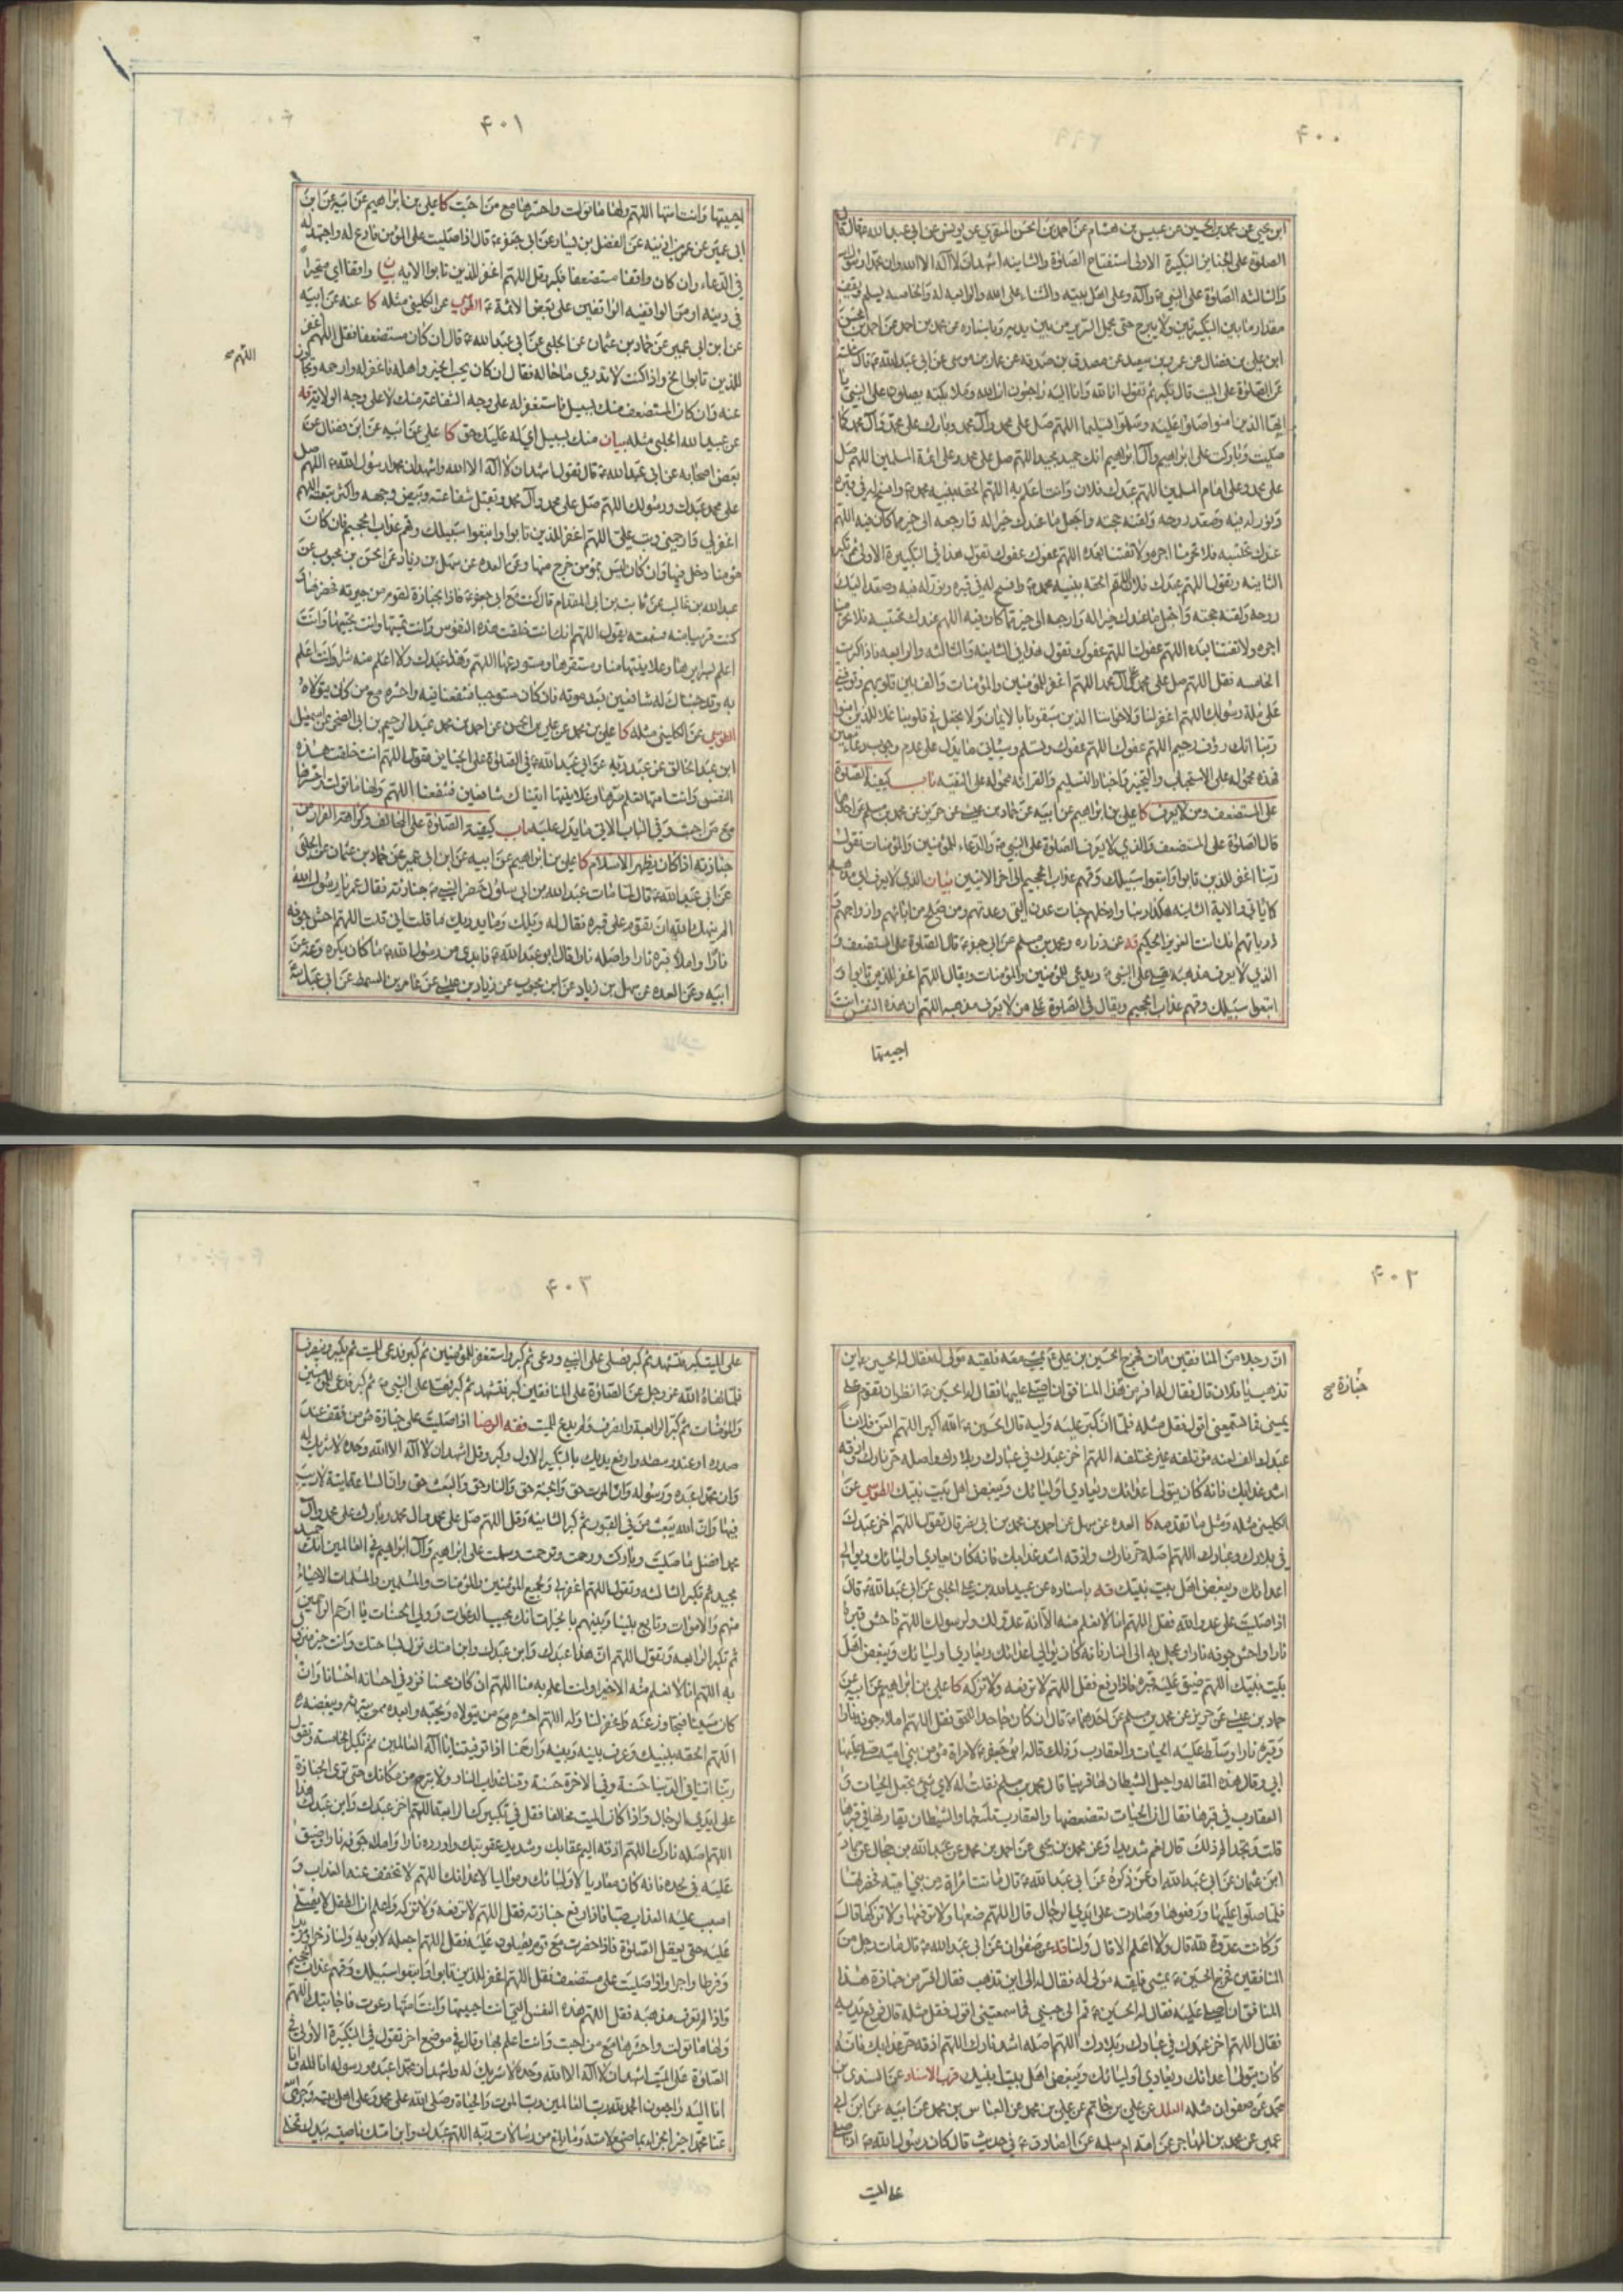 ۴۰۰
ابن يحيى عن محمد بن الحسين عن عبيس بن هشام عن احمد بن الحسن المقري عن يونس عن ابي عبد الله ع قال قال
الصلوة على الجنائز التكبيرة الاولى استفتاح الصلوة والثانية اشهد ان لا اله الا الله وان محمدا رسول الله
والثالثة الصلوة على النبي ص وآله وعلى اهل بيته والثناء على الله والرابعة له والخامسة يسلم ويقف
مقدار ما بين التكبيرتين ولا يبرح حتى يحمل السرير من بين يديه وباسناده عن محمد بن احمد عن احمد بن الحسن
ابن علي بن فضال عن عمرو بن سعيد عن مصدق بن صدقه عن عمار بن موسى عن ابي عبد الله ع قال سئلته
عن الصلوة على الميت قال تكبر ثم تقول انا لله وانا اليه راجعون ان الله وملائكته يصلون على النبي يا
ايها الذين امنوا صلوا عليه وسلموا تسليما اللهم صل على محمد وآل محمد وبارك على محمد وآل محمد كما
صليت وباركت على ابراهيم وآل ابراهيم انك حميد مجيد اللهم صل على محمد وعلى ائمة المسلمين اللهم صل
على محمد وعلى امام المسلمين اللهم عبدك فلان وانت اعلم به اللهم الحقه بنبيه محمد ص وافسح له في قبره
ونور له فيه وصعد روحه ولقنه حجته واجعل ما عندك خيرا له وارجعه الى خير مما كان فيه اللهم
عندك نحتسبه فلا تحرمنا اجره ولا تفتنا بعده اللهم عفوك عفوك تقول هذا في التكبيرة الاولى ثم تكبر
الثانية وتقول اللهم عبدك فلان اللهم الحقه بنبيه محمد ص وافسح له في قبره ونور له فيه وصعد اليك
روحه ولقنه حجته واجعل ما عندك خيرا له وارجعه الى خير مما كان فيه اللهم عندك نحتسبه فلا تحرمنا
اجره ولا تفتنا بعده اللهم عفوك اللهم عفوك تقول هذا في الثانية والثالثة والرابعة فاذا كبرت
الخامسة فقل اللهم صل على محمد وآل محمد اللهم اغفر للمؤمنين والمؤمنات والف بين قلوبهم وتوفني
على ملة رسولك اللهم اغفر لنا ولاخواننا الذين سبقونا بالايمان ولا تجعل في قلوبنا غلا للذين امنوا
ربنا انك رؤف رحيم اللهم عفوك اللهم عفوك وتسلم وسيأتي ما يدل على عدم وجوب دعاء معين
فهذه محمولة على الاستحباب والتخيير واخبار التسليم والقرائة محمولة على التقية باب كيفية الصلوة
على المستضعف ومن لا يعرف كا علي بن ابراهيم عن ابيه عن حماد بن عيسى عن حريز عن محمد بن مسلم عن احدهما
قال الصلوة على المستضعف والذي لا يعرف الصلوة على النبي ص والدعاء للمؤمنين والمؤمنات تقول
ربنا اغفر للذين تابوا واتبعوا سبيلك وقهم عذاب الجحيم الى اخر الايتين بيان الذي لا يعرف اي مذهبه
كما ياتي والاية الثانية هكذا ربنا وادخلهم جنات عدن التي وعدتهم ومن صلح من ابائهم وازواجهم و
ذرياتهم انك انت العزيز الحكيم قه عن زراره ومحمد بن مسلم عن ابي جعفر ع قال الصلوة على المستضعف و
الذي لا يعرف مذهبه يصلي على النبي ص ويدعى للمؤمنين والمؤمنات ويقال اللهم اغفر للذين تابوا و
اتبعوا سبيلك وقهم عذاب الجحيم ويقال في الصلوة على من لا يعرف مذهبه اللهم ان هذه النفس انت
احييتها
۴۰۱
احييتها وانت امتها اللهم ولها ما تولت واحشرها مع من احبت كا علي بن ابراهيم عن ابيه عن ابن
ابي عمير عن عمر بن اذينه عن الفضيل بن يسار عن ابي جعفر ع قال اذا صليت على المؤمن فادع له واجتهد له
في الدعاء وان كان واقفا مستضعفا فكبر وقل اللهم اغفر للذين تابوا الاية بيان واقفا اي متحيرا
في دينه او من الواقفية الواقفين على بعض الائمة ع الطوسي عن الكليني مثله كا عنه عن ابيه
عن ابن ابي عمير عن حماد بن عثمان عن الحلبي عن ابي عبد الله ع قال ان كان مستضعفا فقل اللهم اغفر
اللهم صح
للذين تابوا الخ واذا كنت لا تدري ما حاله فقال ان كان يحب الخير واهله فاغفر له وارحمه وتجاوز
عنه وان كان المستضعف منك بسبيل فاستغفر له على وجه الشفاعة منك لا على وجه الولاية قه
عن عبيد الله الحلبي مثله بيان منك بسبيل اي له عليك حق كا علي عن ابيه عن ابن فضال عن
بعض اصحابه عن ابي عبد الله ع قال تقول اشهد ان لا اله الا الله واشهد ان محمدا رسول الله ص اللهم صل
على محمد عبدك ورسولك اللهم صل على محمد وآل محمد وتقبل شفاعته وبيض وجهه واكثر تبعه اللهم
اغفر لي وارحمني وتب علي اللهم اغفر للذين تابوا واتبعوا سبيلك وقهم عذاب الجحيم فان كان
مؤمنا دخل فيها وان كان ليس بمؤمن خرج منها وعن العده عن سهل بن زياد عن الحسن بن محبوب عن
عبد الله بن غالب عن ثابت بن ابي المقدام قال كنت مع ابي جعفر ع فاذا بجنازة لقوم من جيرته فحضرها و
كنت قريبا منه فسمعته يقول اللهم انك انت خلقت هذه النفوس وانت تميتها وانت تحييها وانت
اعلم بسرايرها وعلانيتها منا ومستقرها ومستودعها اللهم وهذا عبدك ولا اعلم منه شرا وانت اعلم
به وقد جئناك له شافعين بعد موته فان كان مستوجبا فشفعنا فيه واحشره مع من كان يتولاه
الطوسي عن الكليني مثله كا علي بن محمد عن علي بن الحسن عن احمد بن محمد عبد الرحيم بن ابي الصخر عن اسمعيل
ابن عبد الخالق عن عبد ربه عن ابي عبد الله ع في الصلوة على الجنايز تقول اللهم انت خلقت هذه
النفس وانت امتها تعلم سرها وعلانيتها اتيناك شافعين فشفعنا اللهم ولها ما تولت واحشرها
مع من احبت وفي الباب الاتي ما يدل عليه باب كيفية الصلوة على المخالف وكراهة الفرار من
جنازته اذا كان يظهر الاسلام كا علي بن ابراهيم عن ابيه عن ابن ابي عمير عن حماد بن عثمان عن الحلبي
عن ابي عبد الله ع قال لما مات عبد الله بن ابي سلول حضر النبي ص جنازته فقال عمر يا رسول الله
الم ينهك الله ان تقوم على قبره فقال له ويلك وما يدريك ما قلت اني قلت اللهم احش جوفه
نارا واملأ قبره نارا واصله نارا قال ابو عبد الله ع فابدى من رسول الله ص ما كان يكره وعنه عن
ابيه وعن العده عن سهل بن زياد عن ابن محبوب عن زياد بن عيسى عن عامر بن السمط عن ابي عبد الله ع
۴۰۲
ان رجلا من المنافقين مات فخرج الحسين بن علي ع يمشي معه فلقيه مولى له فقال له الحسين ع اين
جنازة صح
تذهب يا فلان قال فقال له افر من هذا المنافق ان اصلي عليها فقال له الحسين ع انظر ان تقوم على
يميني فما تسمعني اقول فقل مثله فلما ان كبر عليه وليه قال الحسين ع الله اكبر اللهم العن فلانا
عبدك الف لعنه مؤتلفه غير مختلفه اللهم اخز عبدك في عبادك وبلادك واصله حر نارك واذقه
اشد عذابك فانه كان يتولى اعدائك ويعادي اوليائك ويبغض اهل بيت نبيك الطوسي عن
الكليني مثله ومثل ما تقدمه كا العده عن سهل عن احمد بن محمد بن ابي نصر قال تقول اللهم اخز عبدك
في بلادك وعبادك اللهم اصله حر نارك واذقه اشد عذابك فانه كان يعادي اوليائك ويوالي
اعدائك ويبغض اهل بيت نبيك قه باسناده عن عبيد الله بن علي الحلبي عن ابي عبد الله ع قال
اذا صليت على عدو الله فقل اللهم انا لا نعلم منه الا انه عدو لك ولرسولك اللهم فاحش قبره
نارا واحش جوفه نارا وعجل به الى النار فانه كان يوالي اعدائك ويعادي اوليائك ويبغض اهل
بيت نبيك اللهم ضيق عليه قبره فاذا رفع فقل اللهم لا ترفعه ولا تزكه كا علي بن ابراهيم عن ابيه عن
حماد بن عيسى عن حريز عن محمد بن مسلم عن احدهما ع قال ان كان جاحدا للحق فقل اللهم املأ جوفه نارا
وقبره نارا وسلط عليه الحيات والعقارب وذلك قاله ابو جعفر ع لامراة سوء من بني اميه صلى عليها
ابي وقال هذه المقاله واجعل الشيطان لها قرينا قال محمد بن مسلم فقلت له لاي شئ يجعل الحيات و
العقارب في قبرها فقال ان الحيات يعضضها والعقارب يلسعها والشيطان يقارنها في قبرها
قلت وتجد الم ذلك قال نعم شديدا وعن محمد بن يحيى عن احمد بن محمد عن عبد الله بن حجال عن حماد
ابن عثمان عن ابي عبد الله ع او عمن ذكره عن ابي عبد الله ع قال ماتت امراة من بني اميه فحضرتها
فلما صلوا عليها ورفعوها وصارت على ايدي الرجال قال اللهم ضعها ولا ترفعها ولا تزكها قال
وكانت عدوة لله قال ولا اعلم الا قال ولنا قه عن صفوان عن ابي عبد الله ع قال مات رجل من
المنافقين فخرج الحسين ع يمشي فلقيه مولى له فقال له الى اين تذهب فقال افر من جنازة هذا
المنافق ان اصلي عليه فقال له الحسين ع قم الى جنبي فما سمعتني اقول فقل مثله قال فرفع يديه
فقال اللهم اخز عبدك في عبادك وبلادك اللهم اصله اشد نارك اللهم اذقه حر عذابك فانه
كان يتولى اعدائك ويعادي اوليائك ويبغض اهل بيت نبيك قرب الاسناد عن السندي بن
محمد عن صفوان مثله العلل عن علي بن حاتم عن علي بن محمد عن العباس بن محمد عن ابيه عن ابن ابي
عمير عن محمد بن المهاجر عن امه ام سلمه عن الصادق ع في حديث قال كان رسول الله ص اذا صلى
على الميت
۴۰۳
على الميت كبر فتشهد ثم كبر فصلى على النبي ودعى ثم كبر واستغفر للمؤمنين ثم كبر فدعى للميت ثم يكبر وينصرف
فلما نهاه الله عز وجل عن الصلوة على المنافقين كبر فتشهد ثم كبر فصلى على النبي ص ثم كبر فدعى للمؤمنين
والمؤمنات ثم كبر الرابعة وانصرف ولم يدع للميت فقه الرضا اذا صليت على جنازة مؤمن فقف عند
صدره او عند وسطه وارفع يديك بالتكبير الاول وكبر وقل اشهد ان لا اله الا الله وحده لا شريك له
وان محمدا عبده ورسوله وان الموت حق والجنة حق والنار حق والبعث حق وان الساعة اتية لا ريب
فيها وان الله يبعث من في القبور ثم كبر الثانية وقل اللهم صل على محمد وآل محمد وبارك على محمد وآل
محمد افضل ما صليت وباركت ورحمت وترحمت وسلمت على ابراهيم وآل ابراهيم في العالمين انك حميد
مجيد ثم تكبر الثالثة وتقول اللهم اغفر لي ولجميع المؤمنين والمؤمنات والمسلمين والمسلمات الاحياء
منهم والاموات وتابع بيننا وبينهم بالخيرات انك مجيب الدعوات وولي الحسنات يا ارحم الراحمين
ثم تكبر الرابعة وتقول اللهم ان هذا عبدك وابن عبدك وابن امتك نزل بساحتك وانت خير منزول
به اللهم انا لا نعلم منه الا خيرا وانت اعلم به منا اللهم ان كان محسنا فزد في احسانه احسانا وان
كان مسيئا فتجاوز عنه واغفر لنا وله اللهم احشره مع من يتولاه ويحبه وابعده ممن يتبراه ويبغضه
اللهم الحقه بنبيك وعرف بينه وبينه وارحمنا اذا توفيتنا يا اله العالمين ثم تكبر الخامسة وتقول
ربنا اتنا في الدنيا حسنة وفي الاخرة حسنة وقنا عذاب النار ولا تبرح من مكانك حتى ترى الجنازة
على ايدي الرجال واذا كان الميت مخالفا فقل في تكبيرك الرابعة اللهم اخز عبدك وابن عبدك هذا
اللهم اصله نارك اللهم اذقه اليم عقابك وشديد عقوبتك واورده نارا واملأ جوفه نارا وضيق
عليه في لحده فانه كان معاديا لاوليائك ومواليا لاعدائك اللهم لا تخفف عنه العذاب و
اصبب عليه العذاب صبا فاذا رفع جنازته فقل اللهم لا ترفعه ولا تزكه واعلم ان الطفل لا يصلى
عليه حتى يعقل الصلوة فاذا حضرت مع قوم يصلون عليه فقل اللهم اجعله لابويه ولنا ذخرا ومزيدا
وفرطا واجرا واذا صليت على مستضعف فقل اللهم اغفر للذين تابوا واتبعوا سبيلك وقهم عذاب الجحيم
واذا لم تعرف مذهبه فقل اللهم هذه النفس التي انت احييتها وانت امتها دعوت فاجابتك اللهم
ولها ما تولت واحشرها مع من احبت وانت اعلم بها وقال في موضع اخر تقول في التكبيرة الاولى في
الصلوة على الميت اشهد ان لا اله الا الله وحده لا شريك له واشهد ان محمدا عبده ورسوله انا لله وانا
انا اليه راجعون الحمد لله رب العالمين رب الموت والحياة وصلى الله على محمد وعلى اهل بيته وجزى الله
عنا محمدا خير الجزاء بما صنع لامته وما بلغ من رسالات ربه اللهم عبدك وابن امتك ناصيته بيدك تخلى